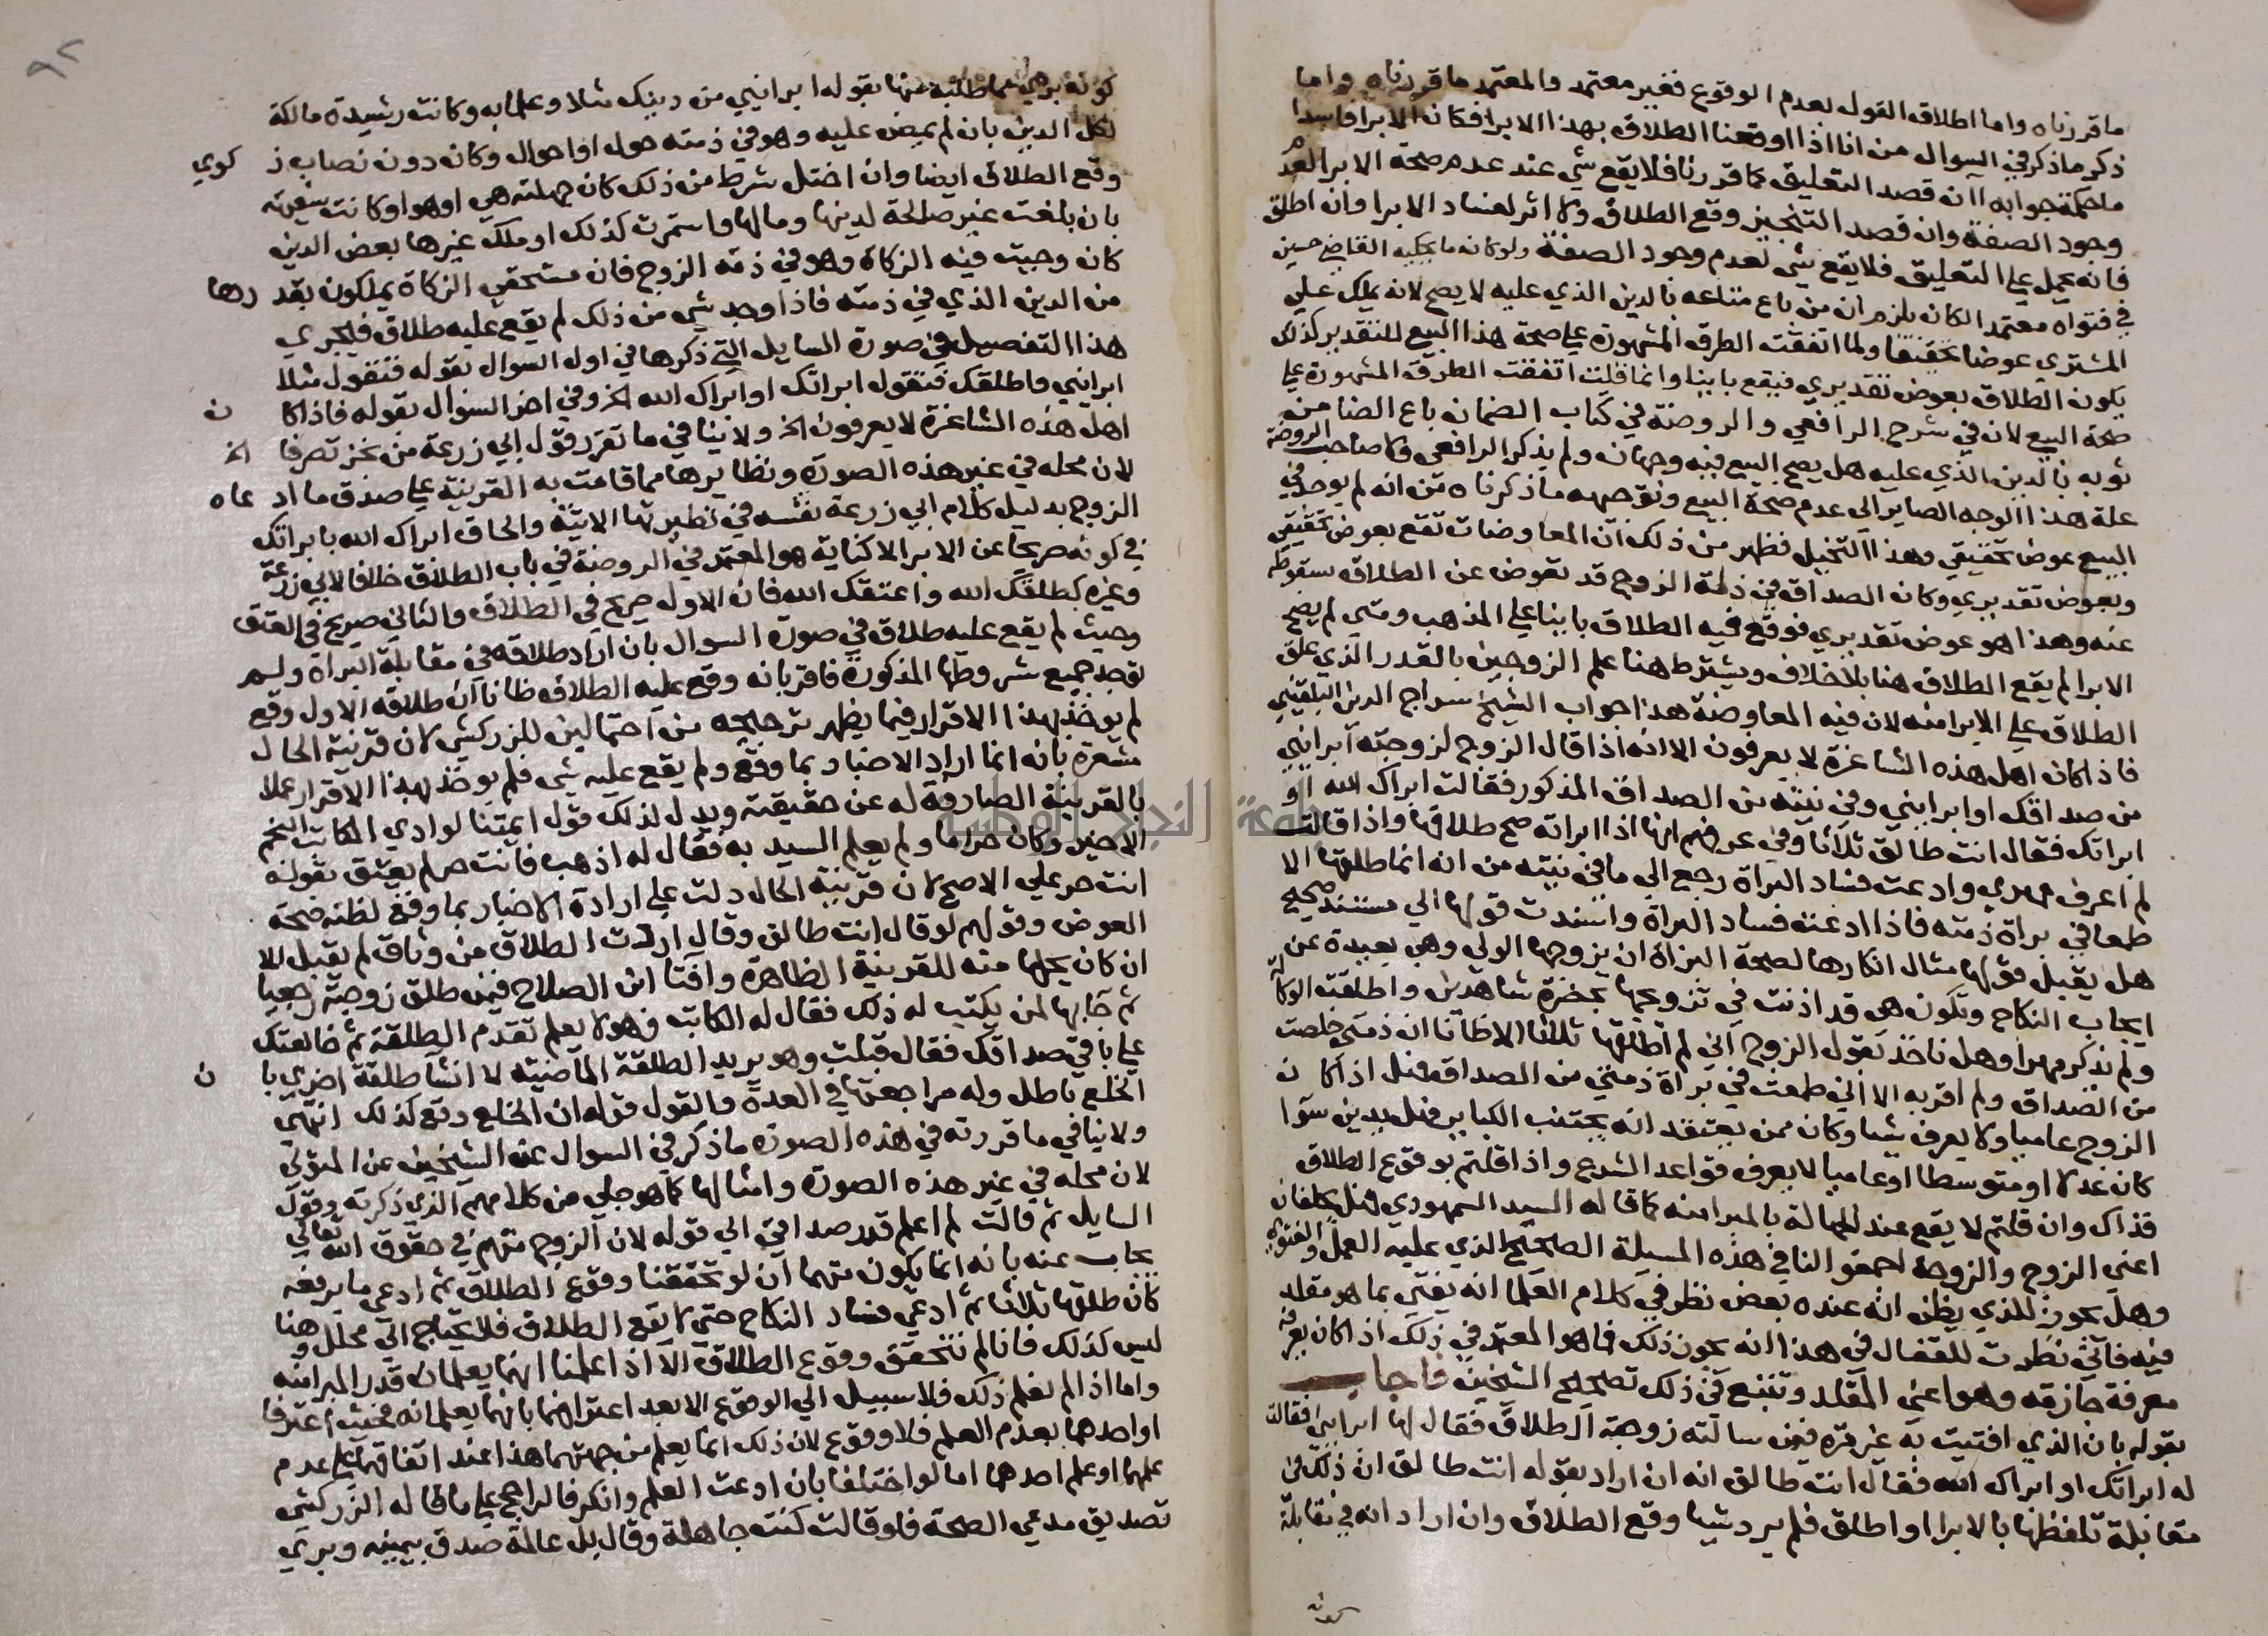 ما قررناه واما اطلاقه القول بعدم الوقوع فغير معتمد والمعتمد ما قررناه واما
ذكر ما ذكر في السوال من انا اذا اوقعنا الطلاق بهذا الابرا فكان الابرا فاسدا
ما حكمه جوابه انه ان قصد التعليق كما قررنا فلا يقع شي عند عدم صحة الابرا لعدم
وجود الصفة وان قصد التنجيز وقع الطلاق ولا اثر لفساد الابرا وان اطلق
فانه يحمل على التعليق فلا يقع شي لعدم وجود الصفة ولو كان ما يحكيه القاضي حسين
في فتواه معتمدا لكان يلزم ان من باع متاعه بالدين الذي عليه لا يصح لانه يملك على
المشتري عوضا تحقيقا ولما اتفقت الطرق المشهورة على صحة هذا البيع للتقدير كذلك
يكون الطلاق بعوض تقديري فيقع باينا وانما قلت اتفقت الطرق المشهورة على
صحة البيع لان في شرح الرافعي والروضة في كتاب الضمان باع الضامن
ثوبه بالدين الذي عليه هل يصح البيع فيه وجهان ولم يذكر الرافعي ولا صاحب الروضة
علة هذا الوجه الصاير الى عدم صحة البيع وتوجيهه ما ذكرناه من انه لم يوجد في
البيع عوض تحقيقي وهذا التخيل فظهر من ذلك ان المعاوضات تقع بعوض تحقيقي
وبعوض تقديري وكان الصداق في ذمة الزوج قد تعوض عن الطلاق سقوطه
عنه وهذا هو عوض تقديري فوقع فيه الطلاق باينا على المذهب ومتى لم يصح
الابرا لم يقع الطلاق هنا بلا خلاف ويشترط هنا علم الزوجين بالقدر الذي علق
الطلاق على الابرا منه لان فيه المعاوضة هذا جواب الشيخ سراج الدين البلقيني
فاذا كان اهل هذه الشاغرة لا يعرفون الا انه اذا قال الزوج لزوجته ابرايني
من صداقك او ابرايني وفي نيته من الصداق المذكور فقالت ابراك الله او
ابراتك فقال انت طالق ثلاثا وفي عرفهم انها اذا ابراته صح طلاقها واذا قالت
لم اعرف مهري وادعت فساد البراة رجع الى ما في نيته من انه انما طلقها الا
طمعا في براة ذمته فاذا ادعت فساد البراة واسندت قولها الى مستند صحيح
هل يقبل قولها مثال انكارها لصحة البراة ان يزوجها الولي وهي بعيدة عن
ايجاب النكاح وتكون هي قد اذنت في تزويجها بحضرة شاهدين واطلقت الوكالة
ولم تذكر مهرا وهل ناخذ بقول الزوج اني لم اطلقها ثلاثا الا ظانا ان ذمتي خلصت
من الصداق ولم اقر به الا اني طمعت في براة ذمتي من الصداق فهل اذا كان
الزوج عاميا ولا يعرف شيا وكان ممن يعتقد انه يجتنب الكباير فهل يدين سوا
كان عدلا او متوسطا او عاميا لا يعرف قواعد الشرع واذا قلتم بوقوع الطلاق
فذاك وان قلتم لا يقع عند الجهالة بالمبرا منه كما قاله السيد السمهودي فهل يحلفان
اعني الزوج والزوجة اجمعوا لنا في هذه المسيلة الصحيح الذي عليه العمل والفتوى
وهل يجوز للذي يظن انه عنده بعض نظر في كلام العلما انه يفتي بما هو مقلد
فيه فاني نظرت للقفال في هذا انه يجوز ذلك فما هو المعتمد في ذلك اذا كان يعرفه
معرفة حازقه وهو اعني المقلد ويتبع في ذلك تصحيح الشيخين فاجاب
بقوله بان الذي افتيت به غير مرة فيمن سالته زوجته الطلاق فقال لها ابرايني فقالت
له ابراتك او ابراك الله فقال انت طالق انه ان اراد بقوله انت طالق ان ذلك في
مقابلة تلفظها بالابرا او اطلق فلم يرد شيا وقع الطلاق وان اراد انه في مقابلة
كونه
كونه بري مما طلبه منها بقوله ابرايني من دينك مثلا وعلما به وكانت رشيدة مالكة
لكل الدين بان لم يمض عليه وهو في ذمته حول او احوال وكان دون نصاب زكوي
وقع الطلاق ايضا وان اختل شرط من ذلك كان جهلته هي او هو او كانت سفيهة
بان بلغت غير صالحة لدينها ومالها واستمرت كذلك او ملك غيرها بعض الدين
كان وجبت فيه الزكاة وهو في ذمة الزوج فان مستحقي الزكاة يملكون بقدرها
من الدين الذي في ذمته فاذا وجد شي من ذلك لم يقع عليه طلاق فليجري
هذا التفصيل في صورة السايل التي ذكرها في اول السوال بقوله فتقول مثلا
ابرايني واطلقك فتقول ابراتك او ابراك الله الخ وفي اخر السوال بقوله فاذا كان
اهل هذه الشاغرة لا يعرفون الخ ولا ينافي ما تقرر قول ابي زرعة من نجز تصرفا الخ
لان محله في غير هذه الصورة ونظايرها مما قامت به القرينة على صدق ما ادعاه
الزوج بدليل كلام ابي زرعة نفسه في نظيرتها الاتية والحاق ابراك الله بابراتك
في كونه صريحا عن الابرا لا كناية هو المعتمد في الروضة في باب الطلاق خلافا لابي زرعة
وغيره كطلقك الله واعتقك الله فان الاول صريح في الطلاق والثاني صريح في العتق
وحيث لم يقع عليه طلاق في صورة السوال بان اراد طلاقه في مقابلة البراة ولم
توجد جميع شروطها المذكورة فاقر بانه وقع عليه الطلاق ظانا ان طلاقه الاول وقع
لم يوخذ بهذا الاقرار فيما يظهر ترجيحه من احتمالين للزركشي لان قرينة الحال
مشعرة بانه انما اراد الاخبار بما وقع ولم يقع عليه شي فلم يوخذ بهذا الاقرار عملا
بالقرينة الصارفة له عن حقيقته ويدل لذلك قول ايمتنا لو ادي المكاتب النجم
الاخير وكان حراما ولم يعلم السيد به فقال له اذهب فانت حر لم يعتق بقوله
انت حر على الاصح لان قرينة الحال دلت على ارادة الاخبار بما وقع لظنه صحة
العوض وقولهم لو قال انت طالق وقال اردت الطلاق من وثاق لم يقبل الا
ان كان يحلها منه للقرينة الظاهرة وافتا ابن الصلاح فيمن طلق زوجته رجعيا
ثم جا بها لمن يكتب له ذلك فقال له الكاتب وهو لا يعلم تقدم الطلقة ثم خالعتك
على باقي صداقك فقال قبلت وهو يريد الطلقة الماضية لا انشا طلقة اخرى بان
الخلع باطل وله مراجعتها في العدة والقول قوله ان الخلع وقع لذلك انتهى
ولا ينافي ما قررته في هذه الصورة ما ذكر في السوال عن الشيخين عن المتولي
لان محله في غير هذه الصورة وامثالها كما هو جلي من كلامهم الذي ذكرته وقول
السايل ثم قالت لم اعلم قدر صداقي الى قوله لان الزوج متهم في حقوق الله تعالى
يجاب عنه بانه انما يكون متهما ان لو تحققنا وقوع الطلاق ثم ادعى ما يرفعه
كان طلقها ثلاثا ثم ادعى فساد النكاح حتى لا يقع الطلاق فلا يحتاج الى محلل وهنا
ليس كذلك فانا لم نتحقق وقوع الطلاق الا اذا علمنا انهما يعلمان قدر المبرا منه
واما اذا لم نعلم ذلك فلا سبيل الى الوقوع الا بعد اعترافهما بانهما يعلمانه فحيث اعترفا
او احدهما بعدم العلم فلا وقوع لان ذلك انما يعلم من جهتهما هذا عند اتفاقهما على عدم
علمهما او علم احدهما اما لو اختلفا بان ادعت العلم وانكر فالراجح على ما قاله الزركشي
تصديق مدعي الصحة فلو قالت كنت جاهلة وقال بل عالمة صدق بيمينه وبري